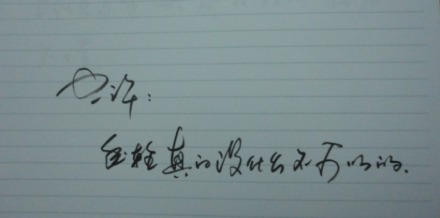 也许：
年轻真的没什么不可以的.